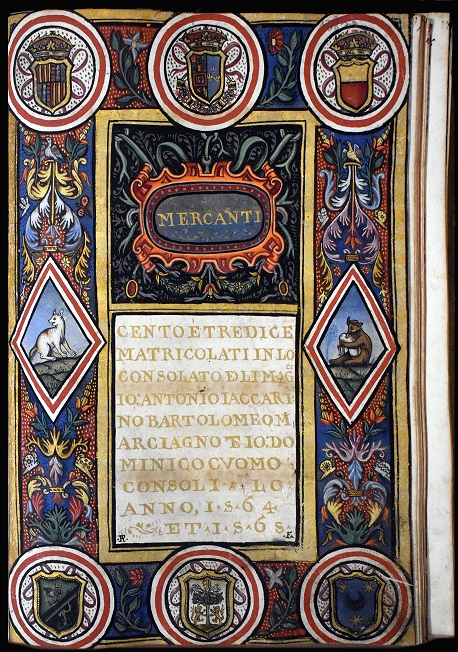 MERCANTI
CENTO E TREDICE
MATRICOLATI IN LO
CONSOLATO DLI MAG
IO ANTONIO IACCARI
NO BARTOLOMEO M
ARCIAGNO E IO DO
MINICO CVOMO
CONSOLI · LO
ANNO, 1·5·64·
ET·1·5·65·
R.